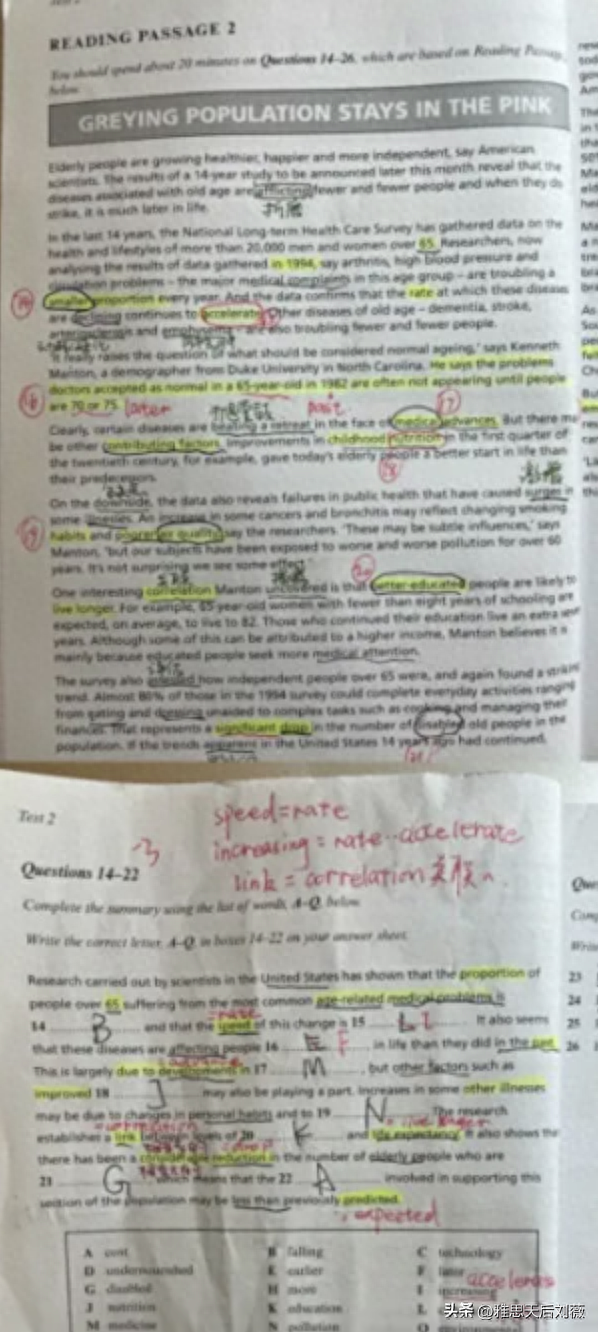 READING PASSAGE 2
You should spend about 20 minutes on Questions 14-26, which are based on Reading Passage
below.
GREYING POPULATION STAYS IN THE PINK
Elderly people are growing healthier, happier and more independent, say American
scientists. The results of a 14-year study to be announced later this month reveal that the
diseases associated with old age are afflicting fewer and fewer people and when they do
strike, it is much later in life.
折磨
In the last 14 years, the National Long-term Health Care Survey has gathered data on the
health and lifestyles of more than 20,000 men and women over 65. Researchers, now
analysing the results of data gathered in 1994, say arthritis, high blood pressure and
circulation problems – the major medical complaints in this age group – are troubling a
14
smaller proportion every year. And the data confirms that the rate at which these diseases
15
are declining continues to accelerate. Other diseases of old age – dementia, stroke,
arteriosclerosis and emphysema – are also troubling fewer and fewer people.
'It really raises the question of what should be considered normal ageing,' says Kenneth
Manton, a demographer from Duke University in North Carolina. He says the problems
doctors accepted as normal in a 65-year-old in 1982 are often not appearing until people
16
are 70 or 75.
later
past
17
Clearly, certain diseases are beating a retreat in the face of medical advances. But there may
be other contributing factors. Improvements in childhood nutrition in the first quarter of
the twentieth century, for example, gave today's elderly people a better start in life than
their predecessors.
18
On the downside, the data also reveals failures in public health that have caused surges in
some illnesses. An increase in some cancers and bronchitis may reflect changing smoking
19
habits and poorer air quality, say the researchers. 'These may be subtle influences,' says
Manton, 'but our subjects have been exposed to worse and worse pollution for over 60
years. It's not surprising we see some effect.'
20
One interesting correlation Manton uncovered is that better-educated people are likely to
live longer. For example, 65-year-old women with fewer than eight years of schooling are
expected, on average, to live to 82. Those who continued their education live an extra seven
years. Although some of this can be attributed to a higher income, Manton believes it is
mainly because educated people seek more medical attention.
The survey also assessed how independent people over 65 were, and again found a striking
trend. Almost 80% of those in the 1994 survey could complete everyday activities ranging
from eating and dressing unaided to complex tasks such as cooking and managing their
finances. That represents a significant drop in the number of disabled old people in the
population. If the trends apparent in the United States 14 years ago had continued,
Test 2
speed=rate
increasing = rate--accelerate
link = correlation
Questions 14-22
Complete the summary using the list of words, A-Q, below.
Write the correct letter, A-Q, in boxes 14-22 on your answer sheet.
Research carried out by scientists in the United States has shown that the proportion of
people over 65 suffering from the most common age-related medical problems is
rate
14 B and that the speed of this change is 15 I. It also seems
that these diseases are affecting people 16 E F in life than they did in the past.
This is largely due to developments in 17 M, but other factors such as
improved 18 J may also be playing a part. Increases in some other illnesses
may be due to changes in personal habits and to 19 N. The research
establishes a link between levels of 20 K and life expectancy. It also shows that
there has been a considerable reduction in the number of elderly people who are
21 G, which means that the 22 A involved in supporting this
section of the population may be less than previously predicted.
expected
A cost
B falling
C technology
D undernourished
E earlier
F later
G disabled
H more
I increasing
J nutrition
K education
L
M medicine
N pollution
O environmental
Ques
23
24
25
26
头条 @雅思天后刘薇